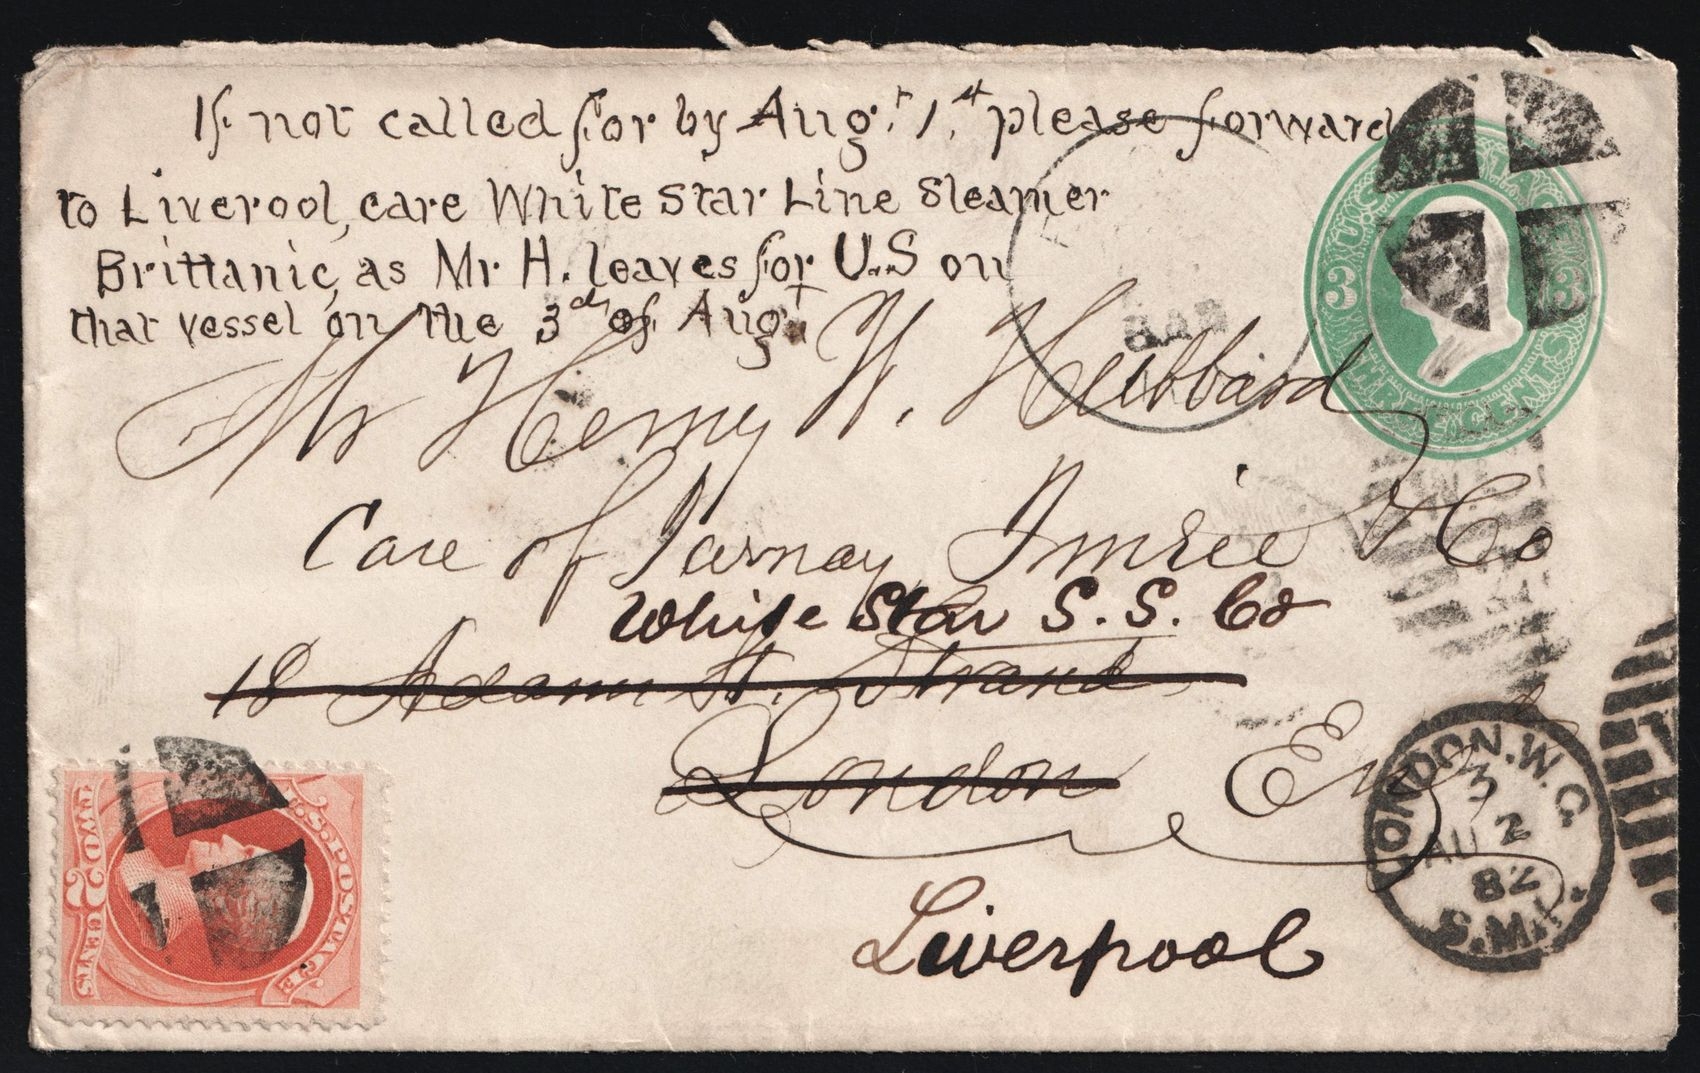 If not called for by Augt 1st please forward
to Liverool, care White Star Line Sleamer
Brittanic, as Mr H. leaves for U.S on
that vessel on the 3d of Augt
Mr Henry W. Hubbard
Care of Parnay Imrie & Co
White Star S. S. Co
18 Adam St. Strand
London Eng
Liverpool
U.S.
3 3
THREE CENTS
LONDON. W.C.
3
AU 2
82
S.M.P.
U.S. POSTAGE
TWO 2 CENTS